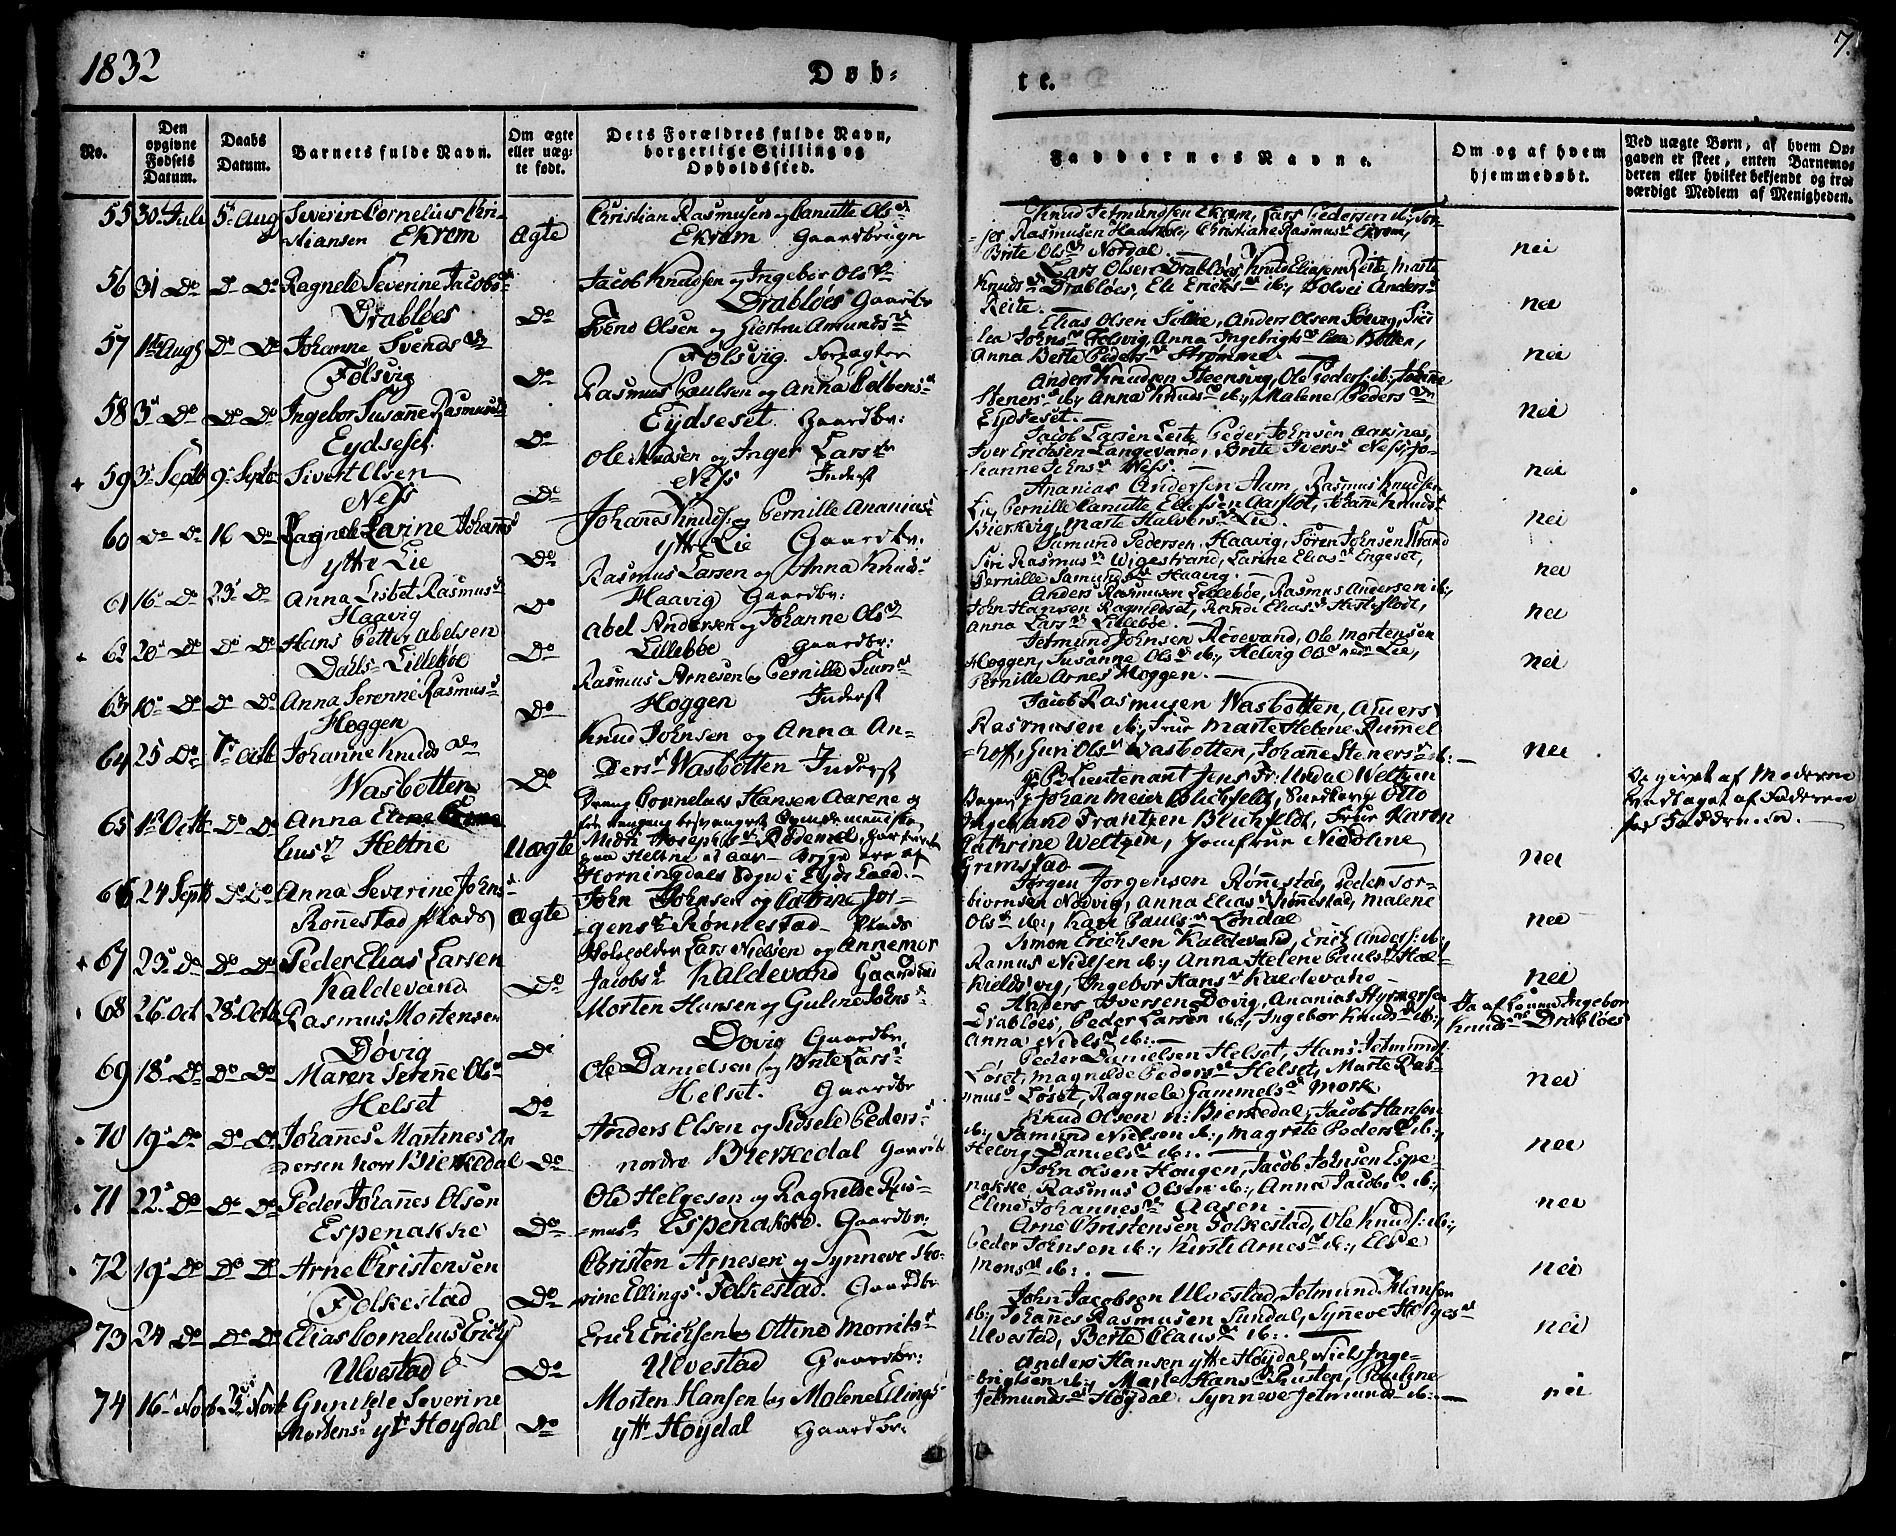 1832
Døb-
te.
7.
No.
Den opgivne Fødsels Datum.
Daabs Datum.
Barnets fulde Navn.
Om ægte eller uægte født.
Dets Forældres fulde Navn, borgerlige Stilling og Opholdssted.
Faddernes Navne.
Om og af hvem hjemmedøbt.
Ved uægte Børn, af hvem Opgaven er skeet, enten Barnemoderen eller hvilket bekjendt og troværdigt Medlem af Menigheden.
55 30 Juli 5 Aug Severin Cornelius Chri-
stiansen Ekrem Ægte
Christian Rasmusen og Canutte Ols
Ekrem Gaardbruger
Knud Jetmundsen Ekrem, Lars Pedersen ib:,
Rasmusen Christiane Rasmus Ekrem,
Brite Ols Nordal.
nei
56 31 Do Do Do Ragnele Severine Jacobs
Drabløes Do
Jacob Knudsen og Ingebor Ols
Drabløes Gaardbr
Lars Olsen Drabløes, Knud Eliasen Reite, Marte
Knuds Drabløes, Eli Ericks ib:, Solvei Anders
Reite.
nei
57 1 Aug Do Do Johanne Svends
Følsvig Do
Svend Olsen og Giertru Amunds
Følsvig. Forpagter
Elias Olsen Anders Olsen
Johns Følsvig, Anna Ingebrigts Botten,
Anna Berte Peders Strømme
nei
58 3 Do Do Do Ingebor Susanne Rasmus
Eydseset Do
Rasmus Paulsen og Anna Colbens
Eydseset Gaardbr:
Anders Knudsen Steensvig, Ole Peders: ib:,
Steners ib:, Anna Knuds ib:, Malene Peders
Eydseset.
nei
+ 59 3 Septb 9 Septb Sivert Olsen
Ness Do
Ole Knudsen og Inger Lars
Ness Inderst
Jacob Larsen Leite Peder Johnsen Aarsnes,
Iver Ericksen Langevand, Brite Ivers Ness, Jo-
hanne Johns Ness.
nei
60 Do Do 16 Do Ragnele Karine Johans
ytte Lie Do
Johannes Knuds og Pernille Ananias
ytte Lie Gaardbr:
Ananias Andersen Aam, Rasmus Knudsen
Lie, Pernille Canutte Ellefsen Aarflot, Johanne Knuds
Bierkvig, Marte Halvors Lie.
nei
61 16 Do 23 Do Anna Lisbet Rasmus
Haavig Do
Rasmus Larsen og Anna Knuds
Haavig Gaardbr:
Samund Pedersen Haavig, Søren Johnsen Strand
Siri Rasmus Wigestrand, Karine Elias Engeset,
Pernille Samunds Haavig.
nei
+ 62 20 Do Do Do Hans Petter Abelsen
Dahls Lillebøe Do
Abel Andersen og Johanne Ols
Lillebøe Gaardbr:
Anders Rasmusen Lillebøe, Rasmus Andersen ib:,
John Hansen Ragnildset, Randi Elias
Anna Lars Lillebøe.
nei
63 10 Do Do Do Anna Serenne Rasmus
Høggen Do
Rasmus Arnesen og Pernille
Høggen Inderst
Jetmund Johnsen Røsevand, Ole Mortensen
Høggen, Susanne Ols ib:, Helvig Ols Lie,
Pernille Arnes Høggen.
nei
64 25 Do 7 Octb Johanne Knuds
Wasbotten Do
Knud Johnsen og Anna An-
ders Wasbotten Inderst
Jacob Rasmusen Wasbotten,
Rasmusen ib:, Frue Marte Helene Rummel
hoff, Guri Ols Wasbotten, Johanne Steners ib:
nei
65 1 Octb Do Do Anna Eline
lius Heltne Uægte
Dreng Cornelius Hansen Aarene og
Midri Josephs Rødemel,
paa Heltne et Aar
Horningdals Sogn i Eyds
Lieutenant Jens Fr: Undal Weltzin
Johan Meier Blichfeldt, Otto
Ingebrand Frantzen Blichfeldt, Frue Karen
Cathrine Weltzin, Jomfrue Nicoline
Grimstad
nei
Opgivet af Moderen
vedtaget af Faderen
66 24 Septb Do Do Anna Severine Johns
Rønnestad plads Ægte
John Johnsen og Catrine Jør-
gens Rønnestad Plads
Jørgen Jørgensen Rønnestad, Peder Tor-
biørnsen Nodvig, Anna Elias Rønnestad, Malene
Ols ib:, Kari Pauls Løndal
nei
+ 67 23 Do Do Do Peder Elias Larsen
Kaldevand Do
Lars Nielsen og Annemor
Jacobs Kaldevand Gaardbr
Simon Ericksen Kaldevand, Erick Anders: ib:,
Ramus Nielsen ib:, Anna Helene Pauls
Ingebor Hans Kaldevand
nei
68 26 Oct 28 Octb Rasmus Mortensen
Døvig Do
Morten Hansen og Guline Johns
Døvig Gaardbr
Anders Iversen Døvig, Ananias
Drabløes, Peder Larsen ib:, Ingebor Knuds ib:,
Anna Niels ib:
Ja af Ingebor
Knuds Drabløes
69 18 Do Do Do Maren Serenne Ols
Helset Do
Ole Danielsen og Brite Lars
Helset. Gaardbr
Peder Danielsen Helset, Hans Jetmunds
Løset, Magnilde Peders Helset, Marte Ras-
mus Løset, Ragnele Gammels Mork
nei
70 19 Do Do Do Johannes Martines An
dersen norr Bierkedal Do
Anders Olsen og Sidsele Peders
nordre Bierkedal Gaardbr
Knud Olsen n: Bierkedal, Jacob Hansen
ib:, Samund Nielsen ib:, Magrete Peders ib:,
Helvig Daniels ib:
nei
71 22 Do Do Do Peder Johannes Olsen
Espenakke Do
Ole Helgesen og Ragnilde Ras-
mus Espenakke. Gaardbr:
John Olsen Hougen, Jacob Johnsen Espe-
nakke, Rasmus Olsen ib:, Anna Jacobs ib:,
Eline Johannes Aasen
nei
72 19 Do Do Do Arne Christensen
Folkestad Do
Christen Arnesen og Synneve
rine Ellings Folkestad. Gaardbr
Arne Christensen Folkestad, Ole Knuds: ib:,
Peder Johnsen ib:, Kirsti Arnes ib:, Else
Mons ib:
nei
73 24 Do Do Do Elias Cornelius Ericks
Ulvestad Do
Erick Ericksen og Ottine Morrits
Ulvestad Gaardbr:
John Jacobsen Ulvestad, Jetmund Hansen
ib:, Johannes Rasmusen Sundal, Synneve Helges
Ulvestad, Berte Claus ib:
nei
74 16 Novb Novb Gunilde Severine
Mortens ytt Høydal Do
Morten Hansen og Malene Ellings
ytt Høydal Gaardbr:
Anders Hansen ytte Høydal, Niels Inge-
brigtsen ib:, Marte Hans Rusten, Pauline
Jetmunds Høydal, Synneve Jetmunds ib:
nei